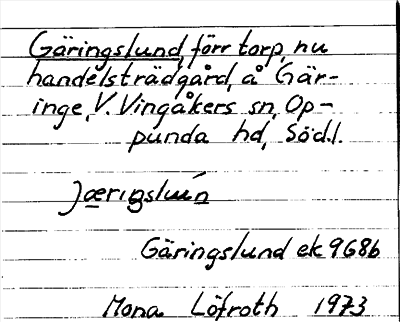 Gäringslund, förr torp, nu
handelsträdgård, å Gär-
inge, V. Vingåkers sn, Op-
punda hd, Södl.
Gäringslund ek 968b
Mona Löfroth 1973